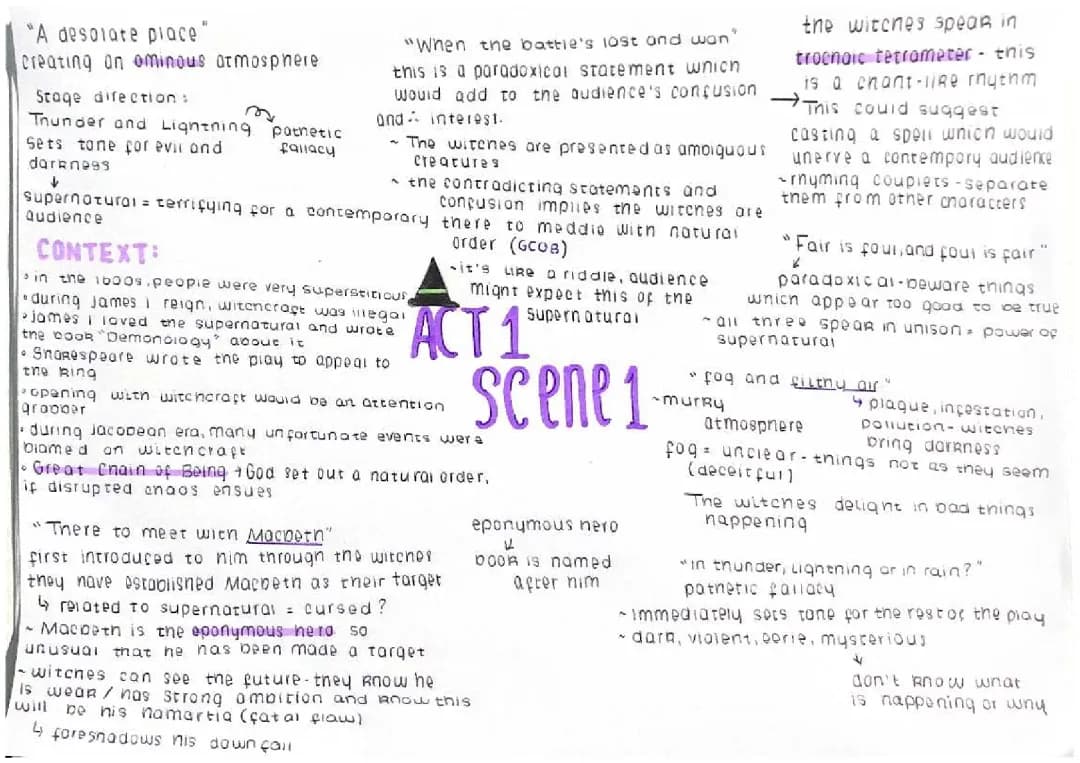 "A desolate place"
creating an ominous atmosphere
Stage direction:
Thunder and Lightning pathetic
fallacy
sets tone for evil and
darkness
supernatural = terrifying for a contemporary
audience
CONTEXT:
• in the 1600s, people were very superstitious
• during James I reign, witchcraft was illegal
• James I loved the supernatural and wrote
the book "Demonology" about it
• Shakespeare wrote the play to appeal to
the king
• opening with witchcraft would be an attention
grabber
• during Jacobean era, many unfortunate events were
blamed on witchcraft
• Great Chain of Being → God set out a natural order,
if disrupted chaos ensues
"There to meet with Macbeth"
first introduced to him through the witches
they have established Macbeth as their target
↳ related to supernatural = cursed?
~ Macbeth is the eponymous hero so
unusual that he has been made a target
~ witches can see the future - they know he
is weak / has strong ambition and know this
will be his hamartia (fatal flaw)
↳ foreshadows his downfall
"When the battle's lost and won"
this is a paradoxical statement which
would add to the audience's confusion
and ∴ interest.
~ The witches are presented as ambiguous
creatures
~ the contradicting statements and
confusion implies the witches are
there to meddle with natural
order (GCOB)
~it's like a riddle, audience
might expect this of the
supernatural
ACT 1
Scene 1
eponymous hero
↓
book is named
after him
the witches speak in
trochaic tetrameter - this
is a chant-like rhythm
→ This could suggest
casting a spell which would
unerve a contempory audience
~rhyming couplets - separate
them from other characters
"Fair is foul, and foul is fair"
paradoxical - beware things
which appear too good to be true
~ all three speak in unison = power of
supernatural
"fog and filthy air"
~murky
atmosphere
↳ plague, infestation,
pollution - witches
bring darkness
fog = unclear - things not as they seem
(deceitful)
The witches delight in bad things
happening
"In thunder, lightning or in rain?"
pathetic fallacy
~ immediately sets tone for the rest of the play
~ dark, violent, eerie, mysterious
↓
don't know what
is happening or why